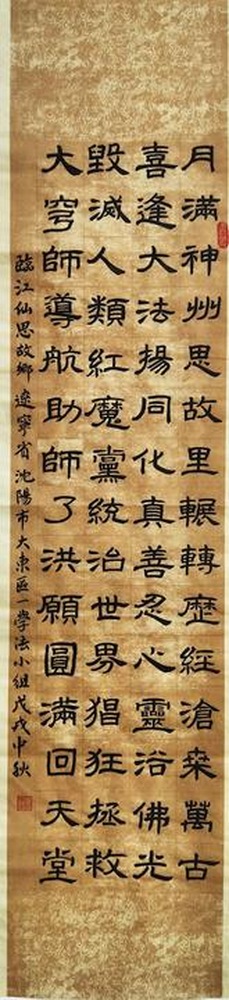 月滿神州思故里輾轉歷經滄桑萬古
喜逢大法揚同化真善忍心靈浴佛光
毀滅人類紅魔黨統治世界猖狂拯救
大穹師導航助師了洪願圓滿回天堂
臨江仙思故鄉 遼寧省沈陽市大東區一學法小組戊戌中秋